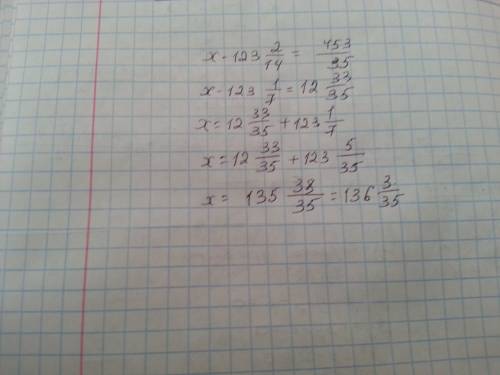 x - 123 2/14 = 453/35
x - 123 1/7 = 12 33/35
x = 12 33/35 + 123 1/7
x = 12 33/35 + 123 5/35
x = 135 38/35 = 136 3/35